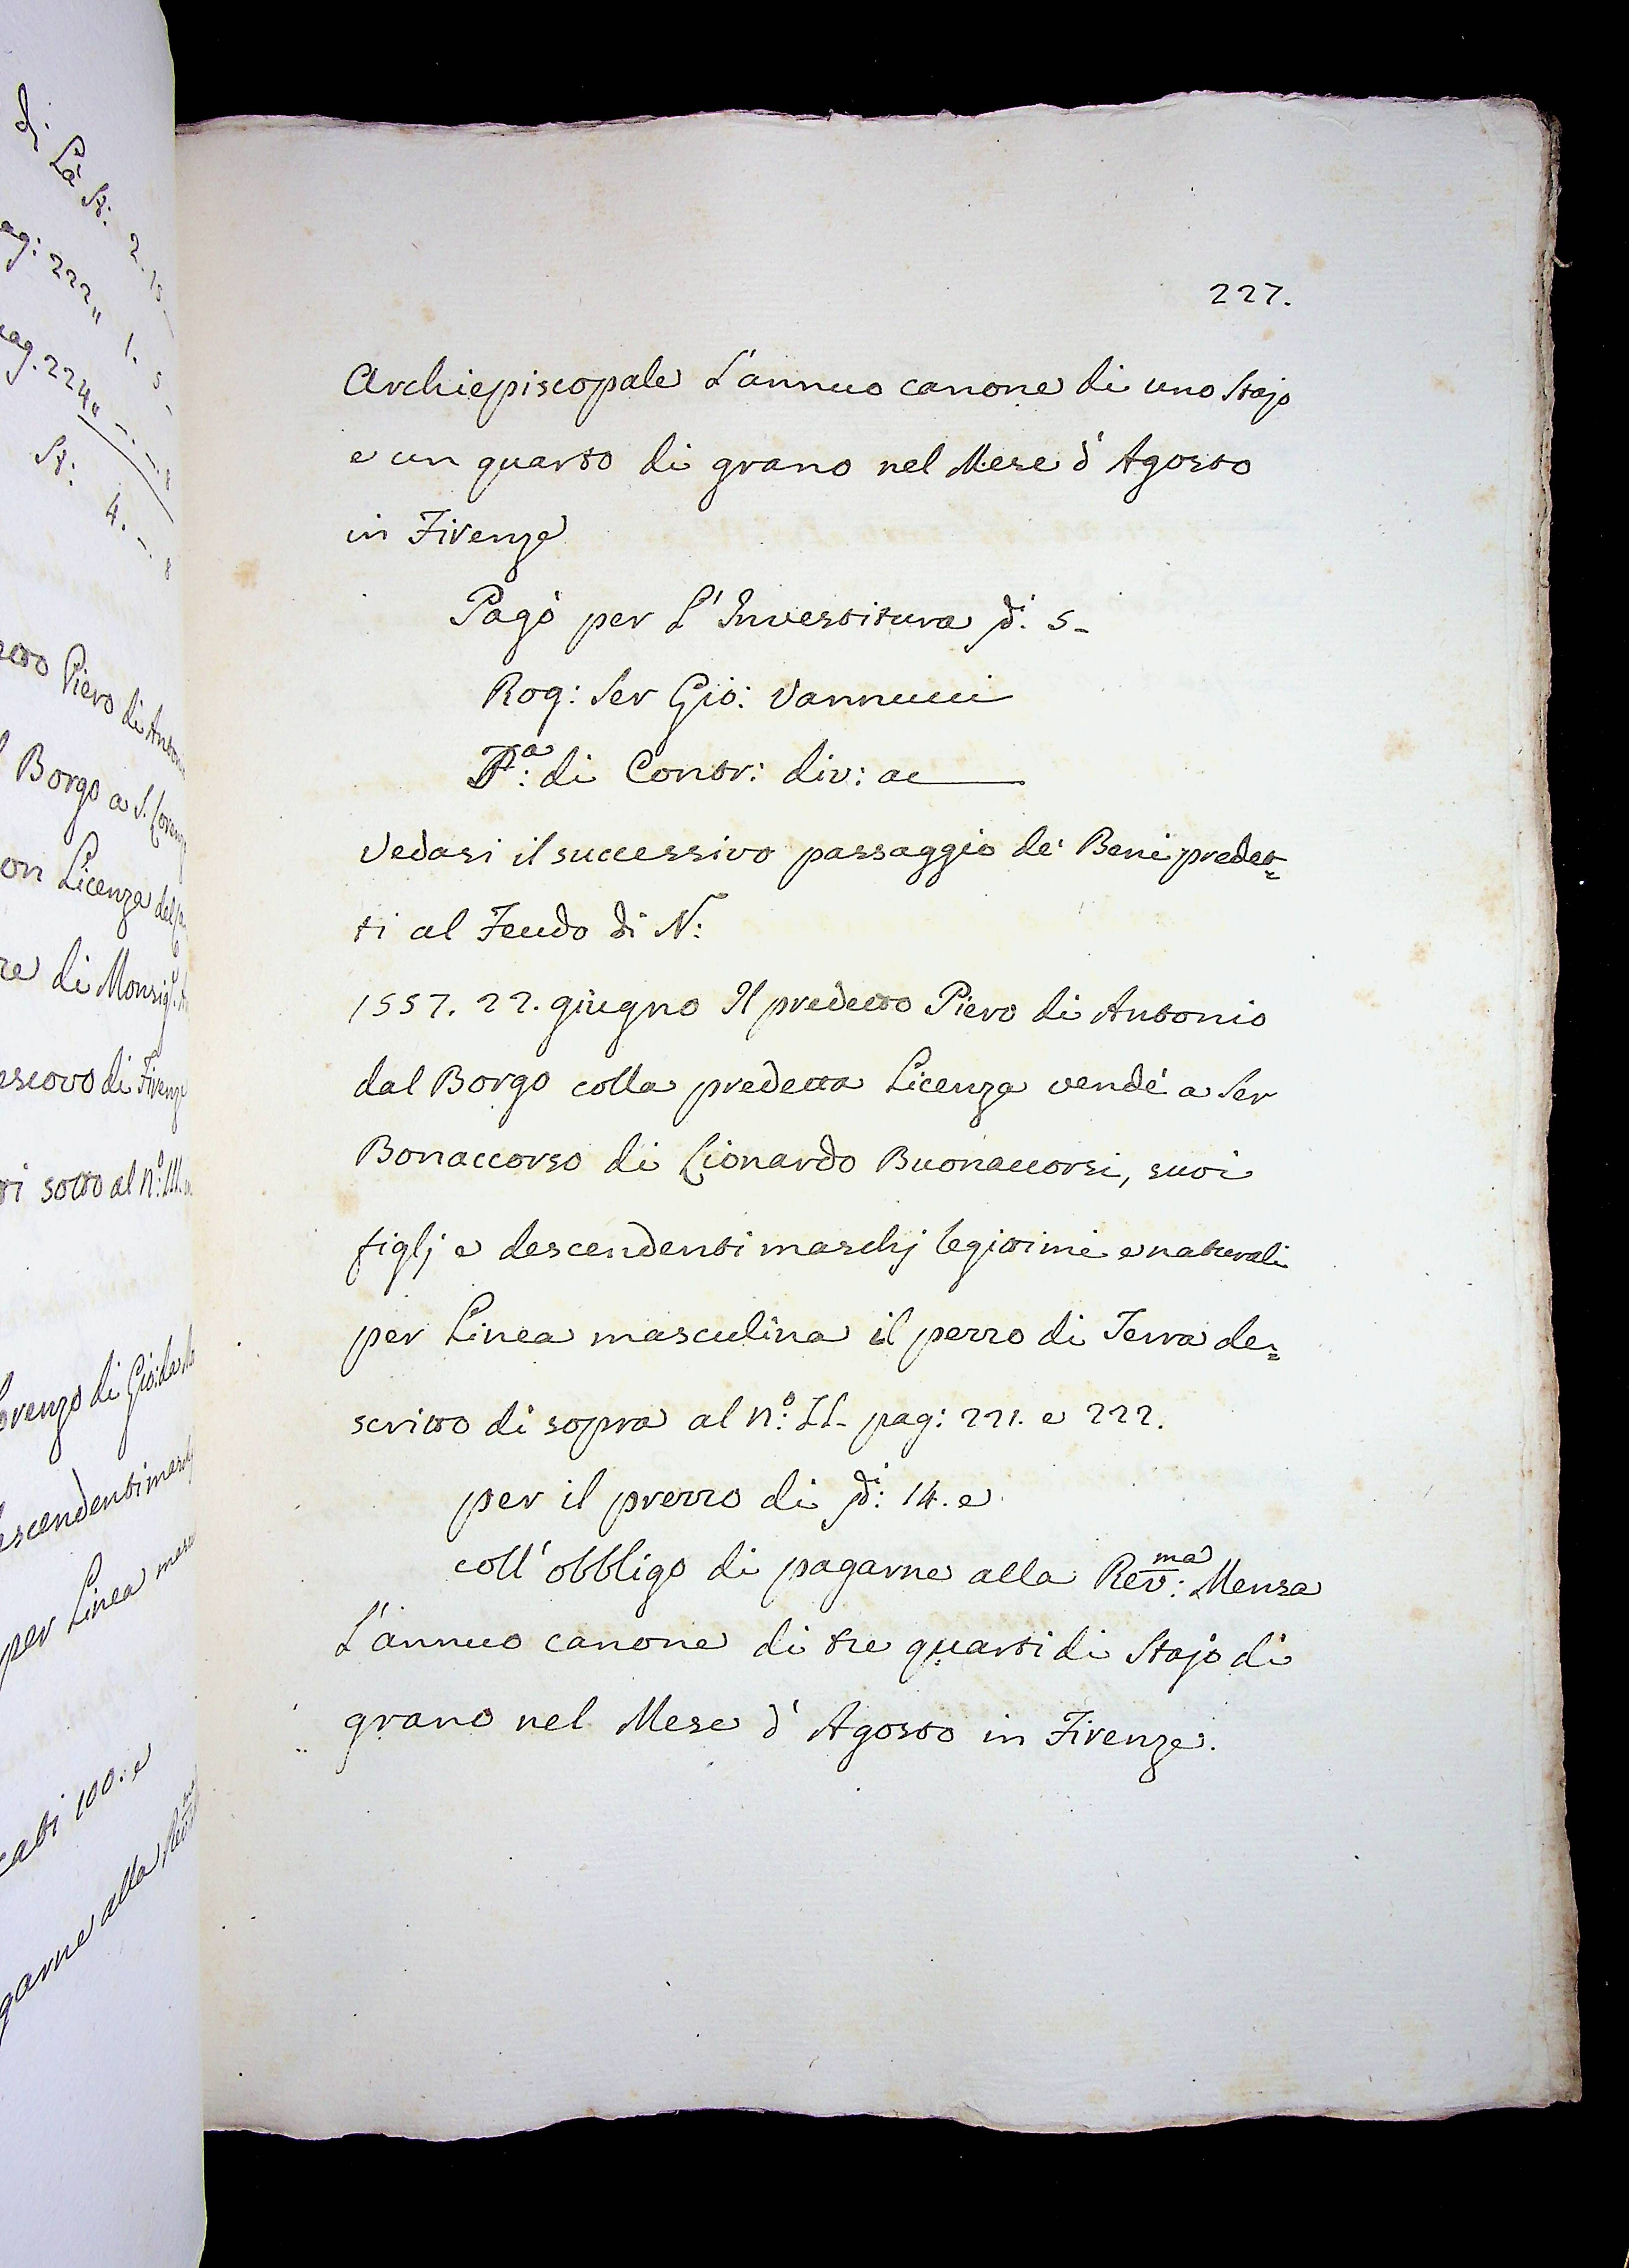 di Là St: 2. 15 –
ag: 222 „ 1. 5 –
ag. 224 „ –. –. 8
St: 4. –. 8
Piero di Anton
l Borgo a S. Loren
on Licenza del
re di Monsig.r
escovo di Firenze
ri sotto al N.o: III.
orenzo di Gio: da
escendenti masch
per Linea mas
cati 100: e
garne alla Rev
227.
Archiepiscopale L'annuo canone di uno Stajo
e un quarto di grano nel Mese d'Agosto
in Firenze
Pagò per L'Investitura 5 –
Rog: Ser Gio: Vannucci
P.a: di Contr: div: ac
Vedasi il successivo passaggio de' Beni predet=
ti al Feudo di N:
1557. 22. giugno Il predetto Piero di Antonio
dal Borgo colla predetta Licenza vendè a Ser
Bonaccorso di Lionardo Buonaccorsi, suoi
figlj e descendenti maschj legittimi e naturali
per Linea masculina il pezzo di Terra de=
scritto di sopra al N.o: II. pag: 221. e 222.
per il prezzo di 14. e
coll'obbligo di pagarne alla Rev:ma Mensa
L'annuo canone di tre quarti di Stajo di
grano nel Mese d'Agosto in Firenze.